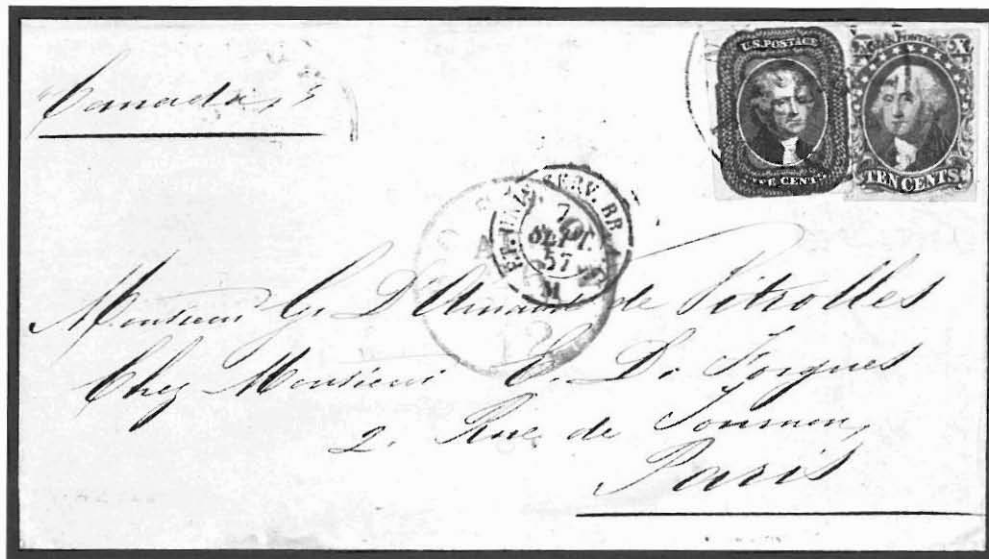 Canada, s
U.S. POSTAGE
FIVE CENTS
X U.S. POSTAGE X
TEN CENTS
ET. UNIS SERV. BR.
7
SEPT.
57
12
Monsieur G. D' de Vitrolles
Chez Monsieur E. D. Forgues
2. Rue de Tournon,
Paris